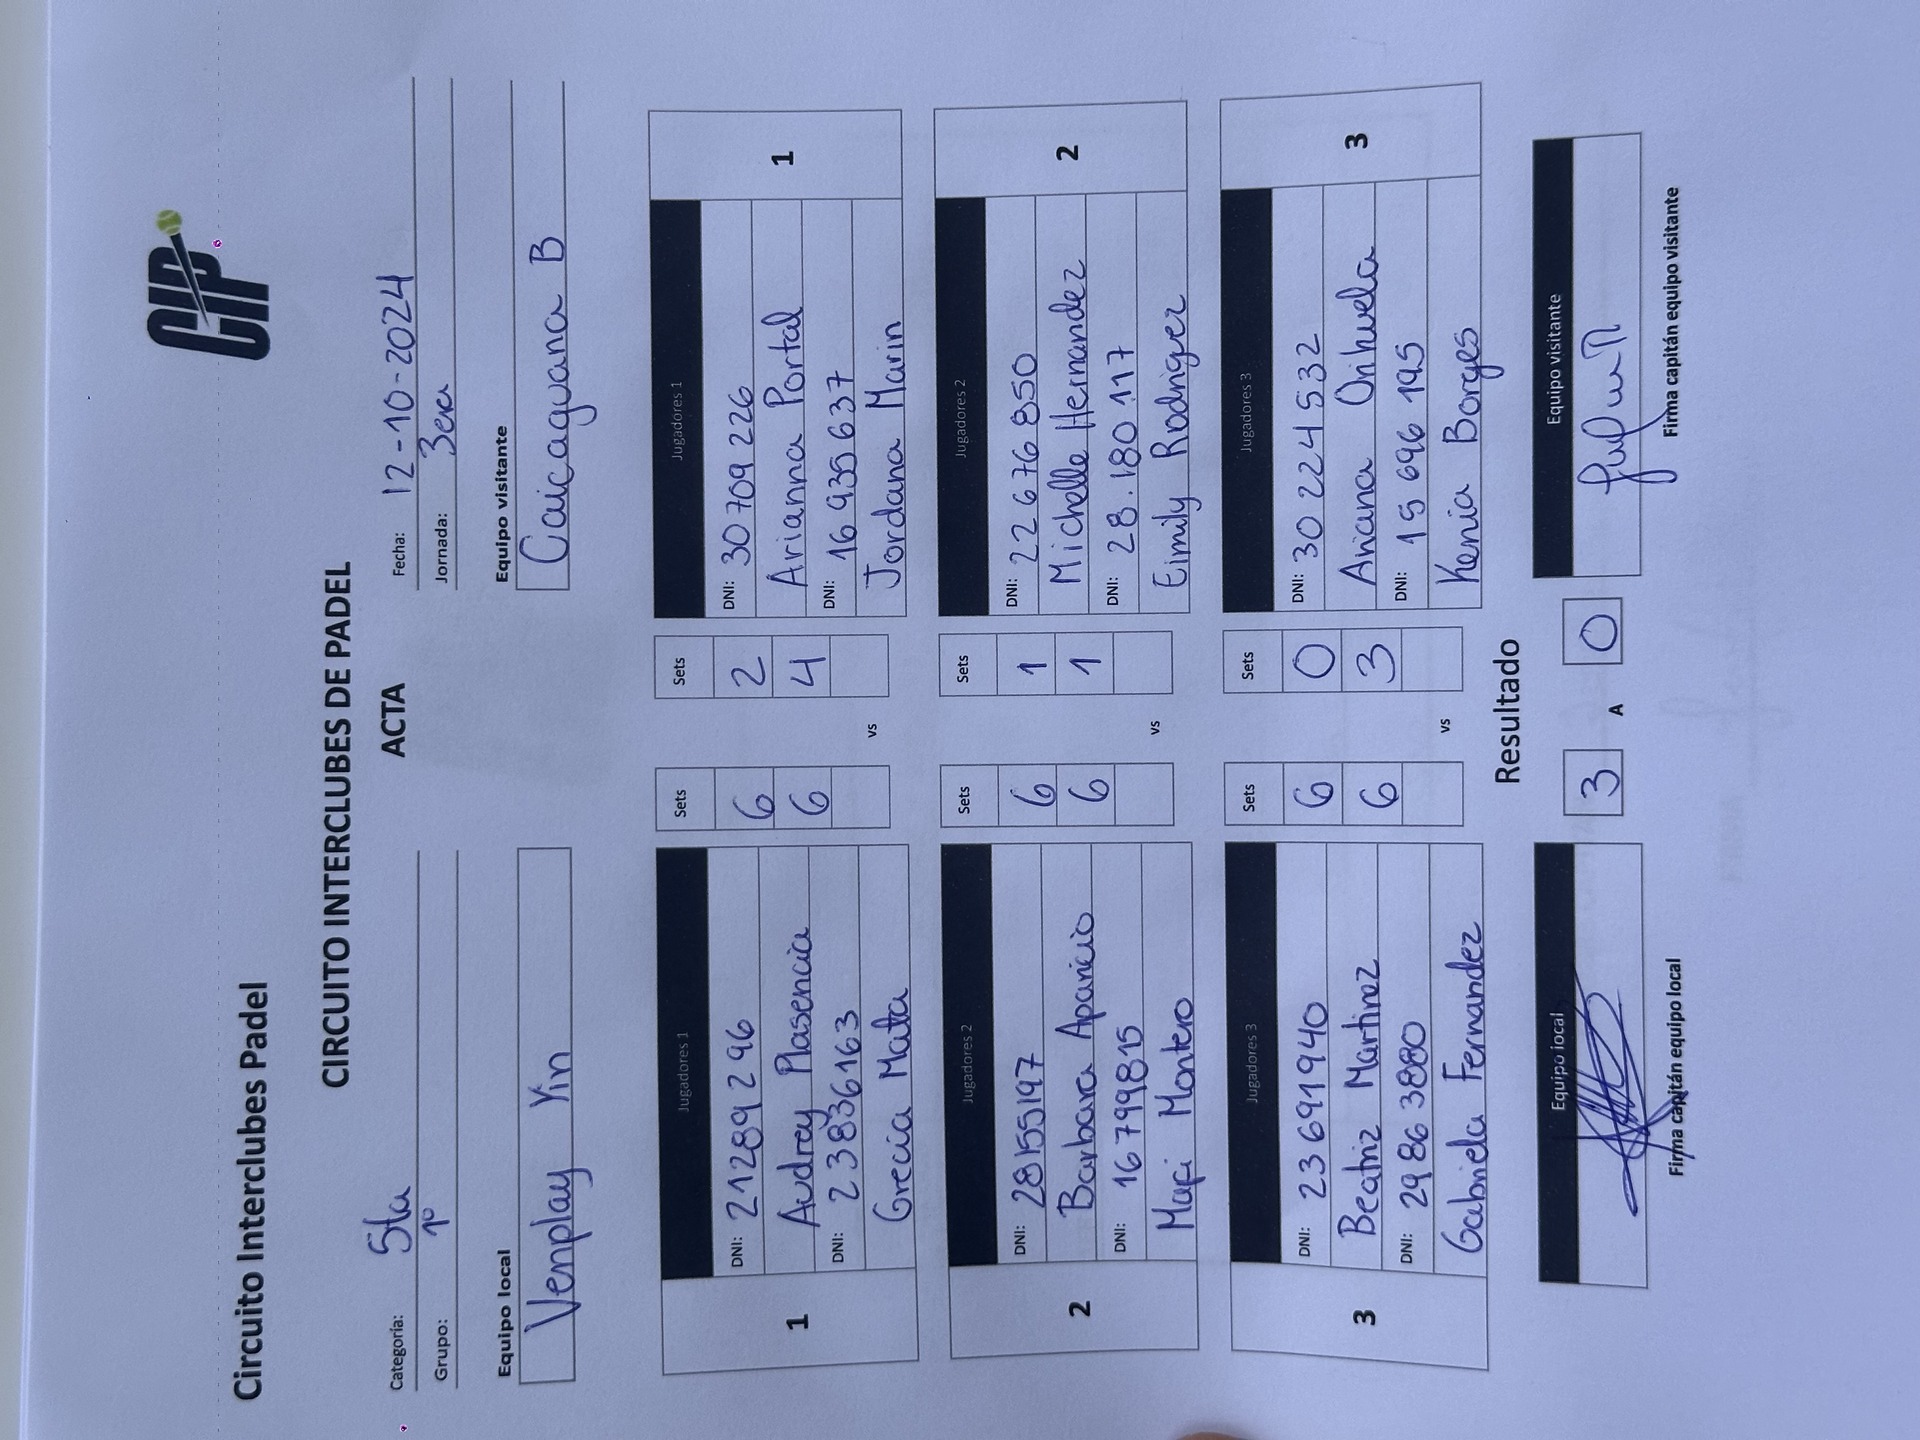 CIP
Circuito Interclubes Padel
CIRCUITO INTERCLUBES DE PADEL
ACTA
Categoría: 5ta
Fecha: 12-10-2024
Grupo: 1º
Jornada: 3era
Equipo local
Equipo visitante
Venplay Yin
Caicaguana B
Jugadores 1 Sets Sets Jugadores 1
DNI: 21289296 6 2 DNI: 30709226
Audrey Plasencia 6 4 Arianna Portal
1 DNI: 23836163 DNI: 16935637 1
Grecia Mata vs Jordana Marin
Jugadores 2 Sets Sets Jugadores 2
DNI: 28155197 6 1 DNI: 22676850
Barbara Aparicio 6 1 Michelle Hernandez
2 DNI: 16799815 DNI: 28.180.117 2
Mapi Montero vs Eimily Rodriguez
Jugadores 3 Sets Sets Jugadores 3
DNI: 23691940 6 0 DNI: 30224532
Beatriz Martinez 6 3 Ariana Orihuela
3 DNI: 29863880 DNI: 15696195 3
Gabriela Fernandez vs Kenia Borges
Resultado
Equipo local 3 A 0 Equipo visitante
Firma capitán equipo local
Firma capitán equipo visitante